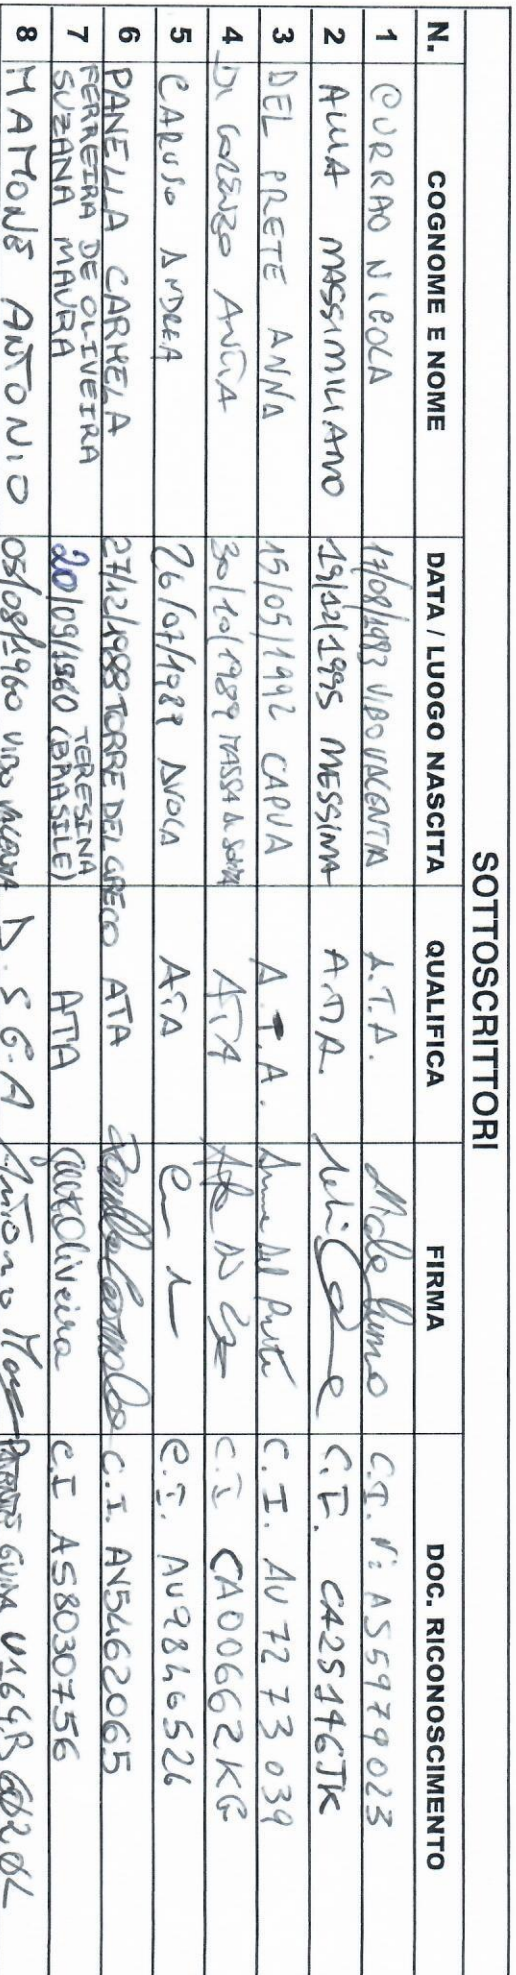 SOTTOSCRITTORI
N. COGNOME E NOME DATA / LUOGO NASCITA QUALIFICA FIRMA DOC. RICONOSCIMENTO
1 CURRAO NICOLA 17/08/1983 VIBO VALENTIA A.T.A. C.I. N: AS5979023
2 ALMA MASSIMILIANO 19/12/1995 MESSINA A.T.A. C.I. CA25146JK
3 DEL PRETE ANNA 15/05/1992 CAPUA A.T.A. Anna Del Prete C.I. AU 7273039
4 DI LORENZO ANITA 30/10/1989 MASSA DI SOMMA ATA C.I. CA00662KG
5 CARUSO ANDREA 26/07/1989 AVOLA ATA C.I. AU9846526
6 PANELLA CARMELA 27/12/1988 TORRE DEL GRECO ATA Panella Carmela C.I. AV5462065
7 FERREIRA DE OLIVEIRA TERESINA
SUZANA MAURA 20/09/1960 (BRASILE) ATA Oliveira C.I AS8030756
8 MAMONE ANTONIO 05/08/1960 VIBO VALENTIA D.S.G.A Antonio PATENTE GUIDA